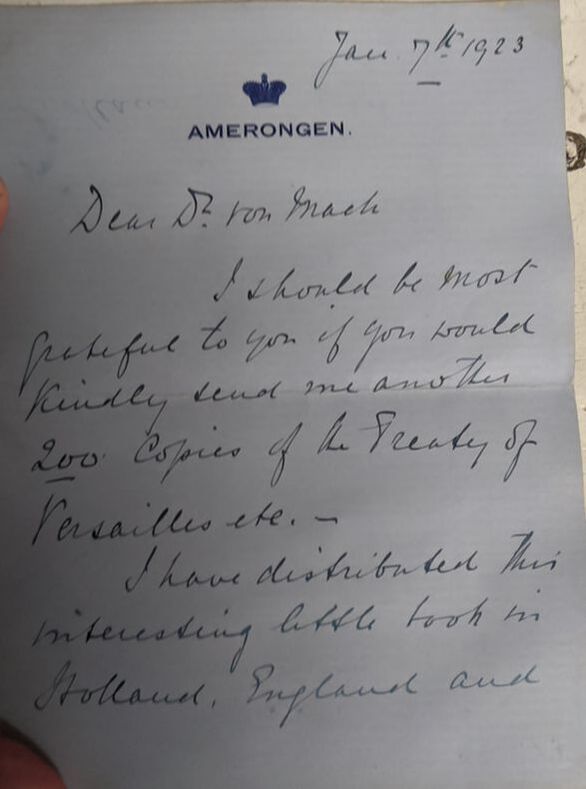 Jan. 7th 1923
AMERONGEN.
Dear Dr. von Mach
I should be most
grateful to you if you would
Kindly send me another
200 Copies of the Treaty of
Versailles etc. —
I have distributed this
interesting little book in
Holland, England and